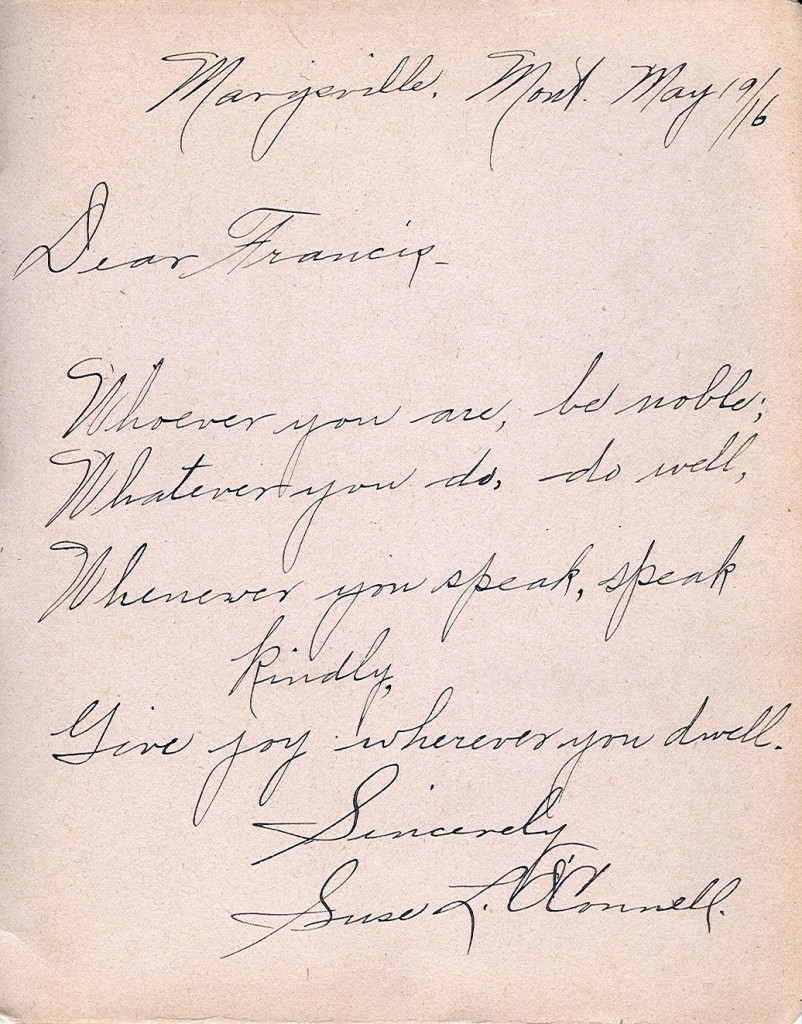 Marysville, Mont. May 19/16
Dear Francis-
Whoever you are, be noble;
Whatever you do, do well,
Whenever you speak, speak
kindly,
Give joy wherever you dwell.
Sincerely
Suse L. O'Connell.